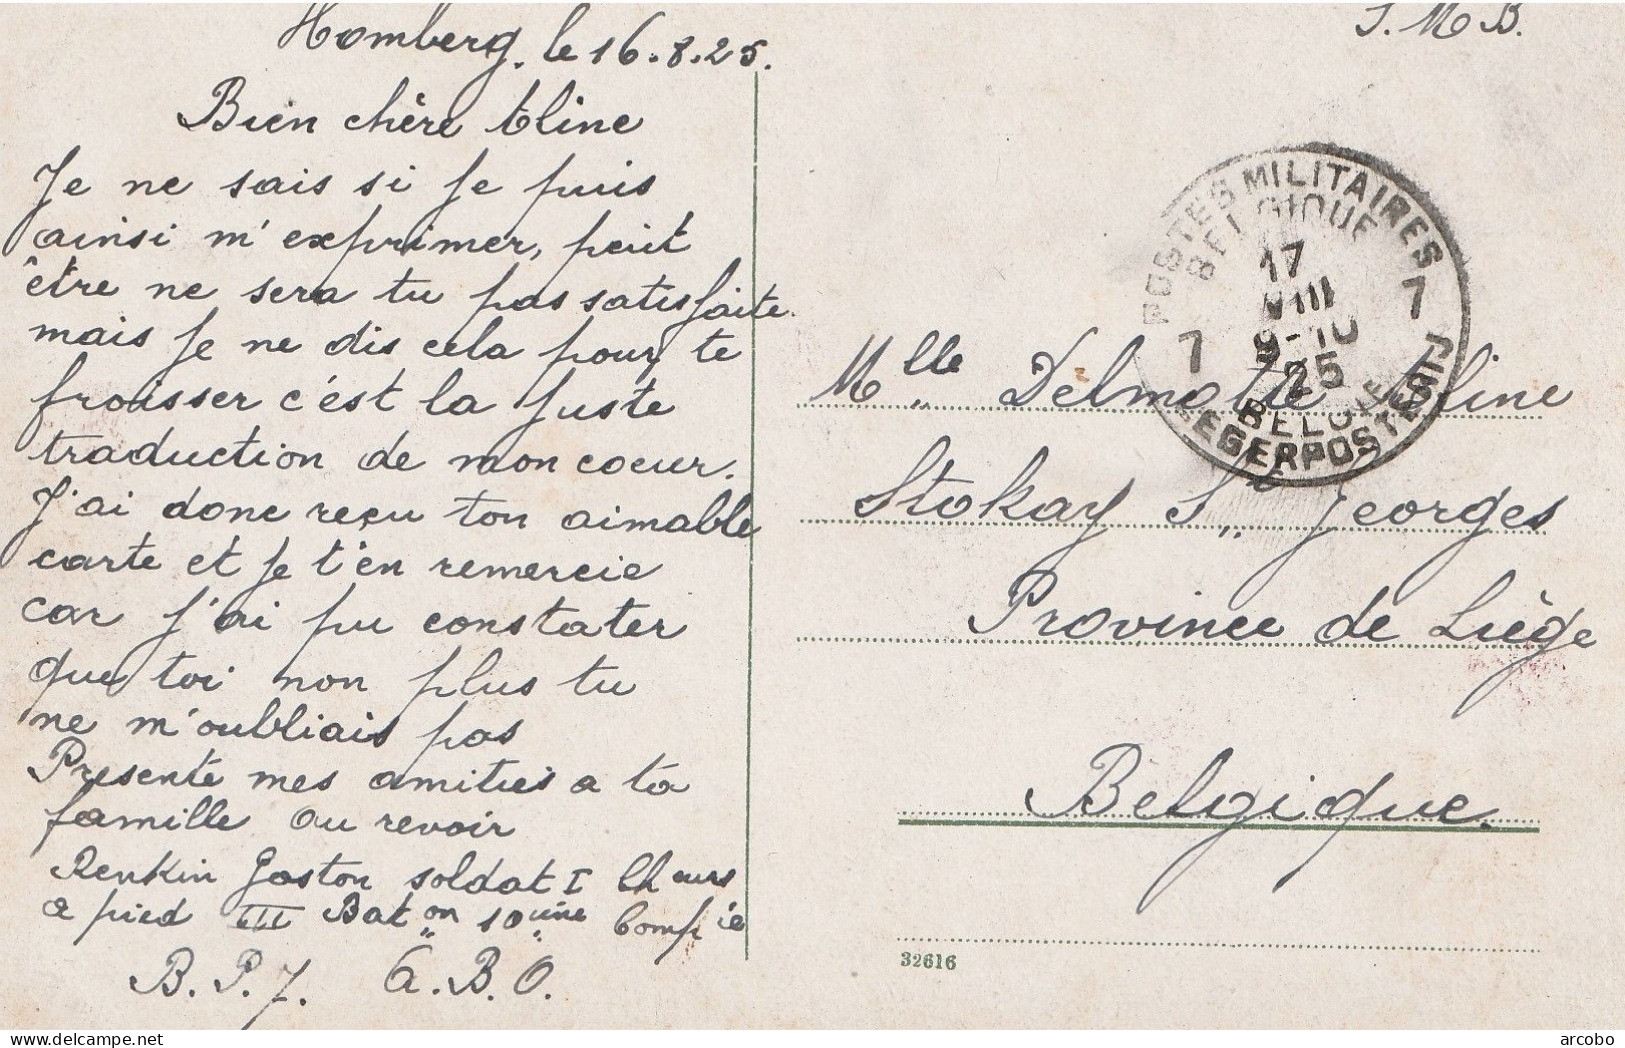 Homberg. le 16.8.25.
S. M. B.
Bien chère Aline
Je ne sais si je puis
ainsi m'exprimer, peut
être ne sera tu pas satisfaite.
mais je ne dis cela pour te
froisser c'est la juste
traduction de mon coeur.
J'ai donc reçu ton aimable
carte et je t'en remercie
car j'ai pu constater
que toi non plus tu
ne m'oubliais pas
Presente mes amities a ta
famille au revoir
Renkin Gaston soldat I Ch eurs
a pied III Bat on 10 ème Comp ie
B.P.7. A.B.O.
POSTES MILITAIRES
BELGIQUE
17
VIII
9-10
25
7 7
BELGIE
LEGERPOSTERIJ
Mlle Delmotte Aline
Stokay St Georges
Province de Liège
Belgique.
32616
delcampe.net
arcobo